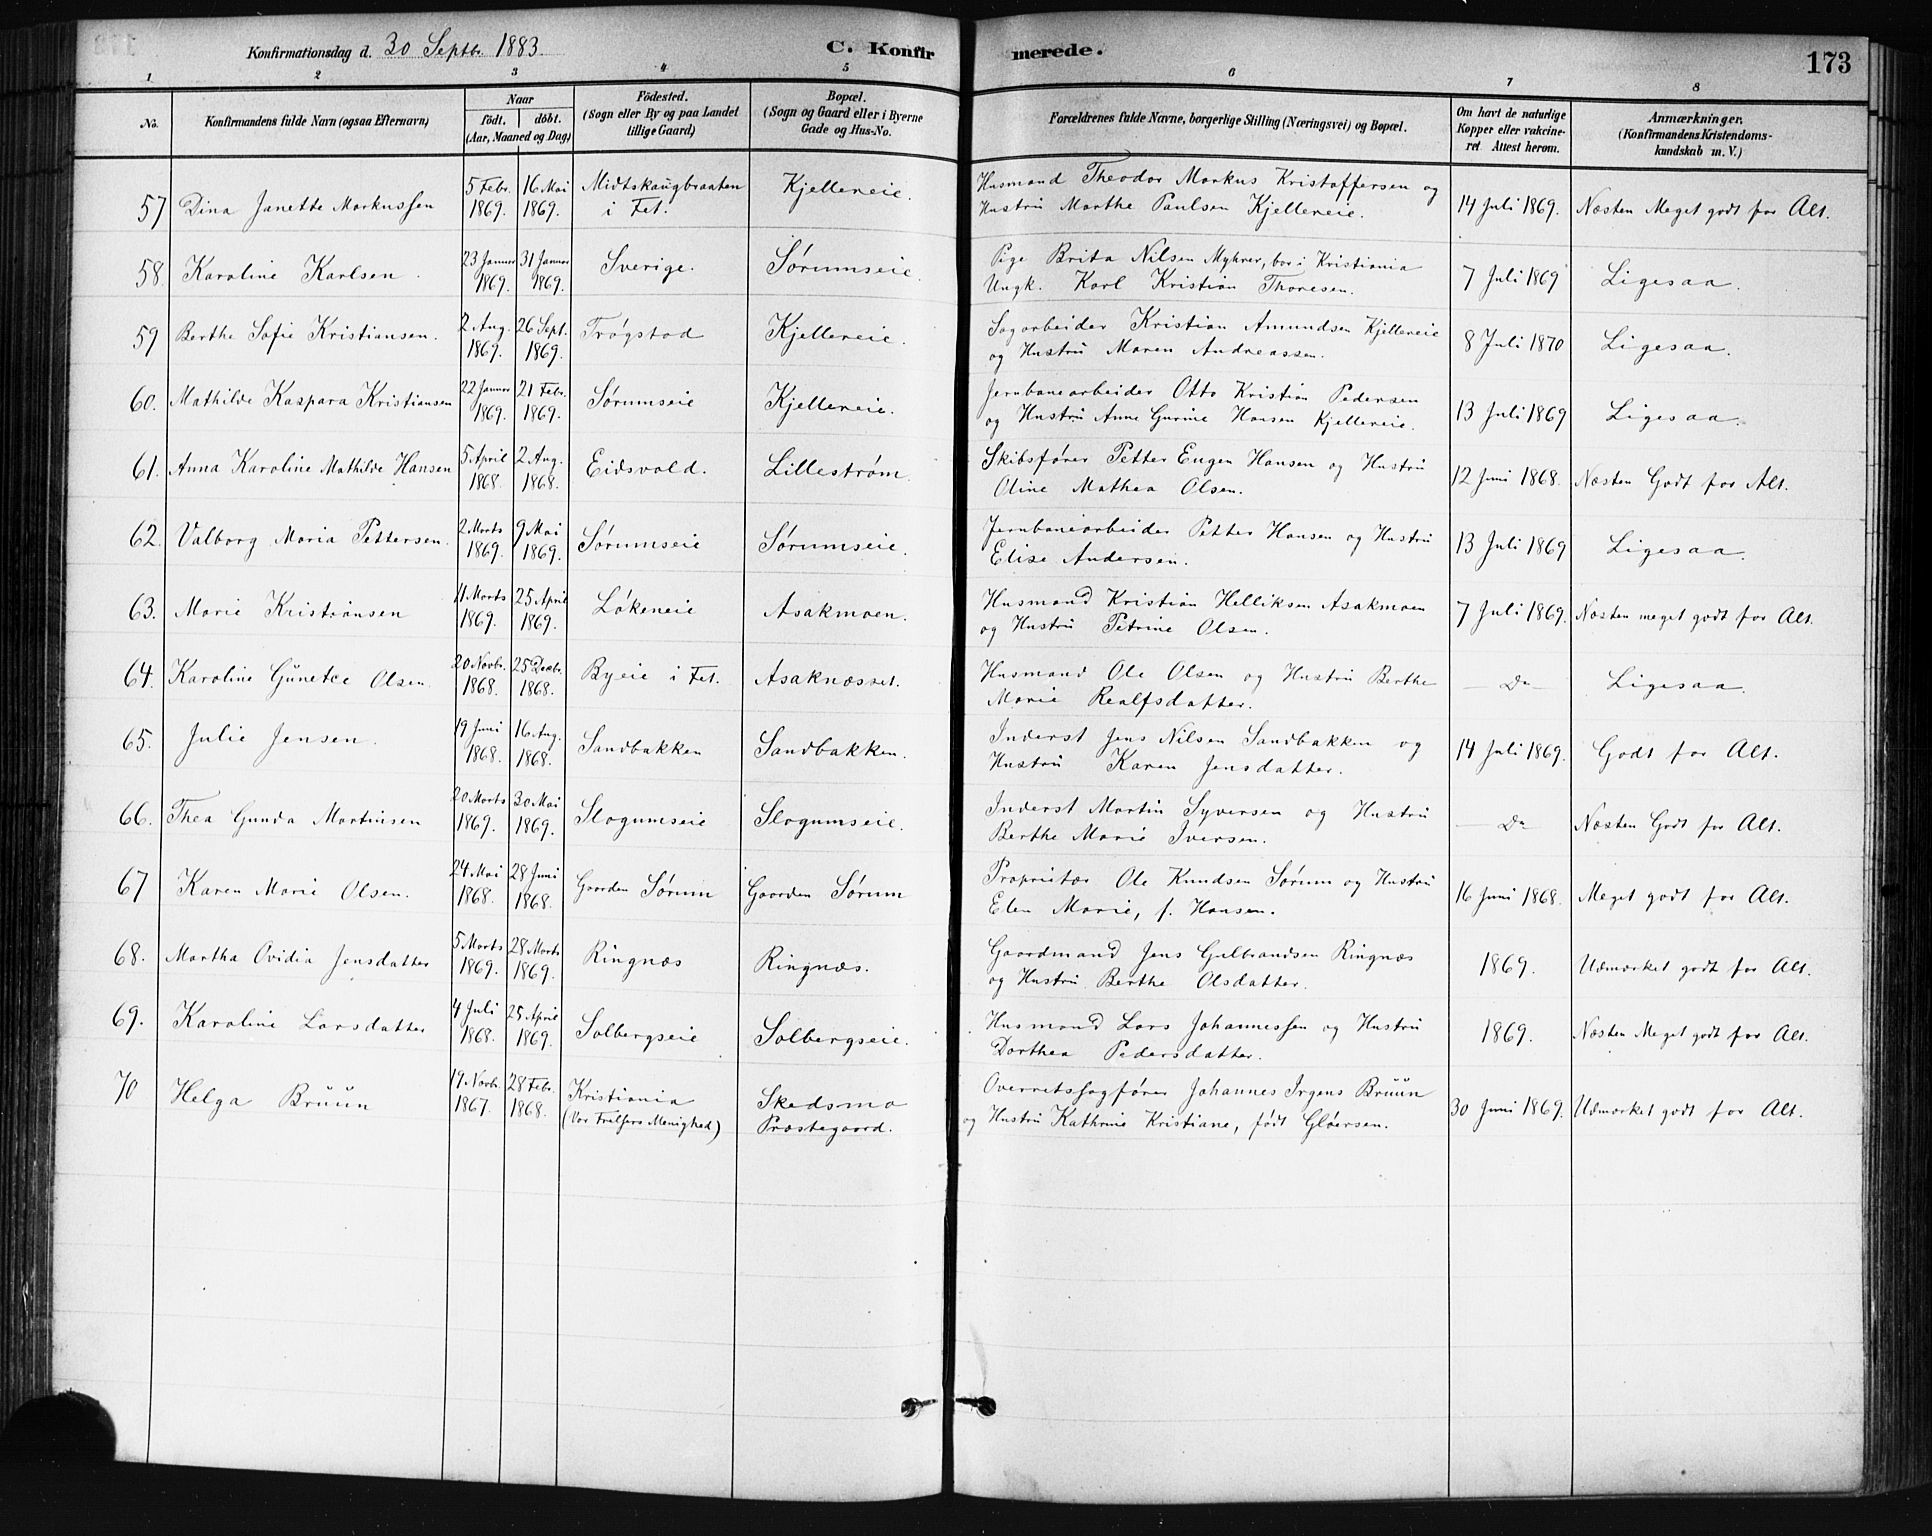 Konfirmationsdag d. 30 Septbr. 1883. C. Konfirmerede. 173
1 2 3 4 5 6 7 8
No. Konfirmandens fulde Navn (ogsaa Efternavn) Naar Födt. döbt. (Aar, Maaned og Dag) Födested. (Sogn eller By og paa Landet tillige Gaard) Bopæl. (Sogn og Gaard eller i Byerne Gade og Hus-No. Forældrenes fulde Navne, borgerlige Stilling (Næringsvei) og Bopæl. Om havt de naturlige Kopper eller vakcineret. Attest herom. Anmærkninger. (Konfirmandens Kristendomskundskab m. V.)
57 Dina Janette Markussen 5 Febr. 1869. 16 Mai 1869. Midtskaugbraaten i Fet. Kjellereie. Husmand Theodor Markus Kristoffersen og Hustru Marthe Paulsen Kjellereie. 14 Juli 1869. Næsten Meget godt for Alt.
58. Karoline Karlsen. 23 Januar 1869. 31 Januar 1869. Sverige. Sørumseie. Pige Brita Nilsen Myhrer, bor i Kristiania Ungk. Karl Kristian Thoresen. 7 Juli 1869 Ligesaa.
59 Berthe Sofie Kristiansen. 2 Aug. 1869. 26 Sept. 1869. Trøgstad Kjellereie. Sagarbeider Kristian Amundsen Kjellereie og Hustru Maren Andreassen. 8 Juli 1870 Ligesaa.
60. Mathilde Kaspara Kristiansen 22 Januar 1869. 21 Febr. 1869. Sørumseie Kjellereie. Jernbanearbeider Otto Kristian Pedersen og Hustru Anne Gurine Hansen Kjellereie. 13 Juli 1869 Ligesaa.
61. Anna Karoline Mathilde Hansen 5 April 1868. 2 Aug. 1868. Eidsvold. Lillestrøm. Skibsfører Petter Eugen Hansen og Hustru Oline Mathea Olsen. 12 Juni 1868. Næsten Godt for Alt.
62. Valborg Maria Pettersen. 2 Marts 1869. 9 Mai 1869. Sørumseie Sørumseie. Jernbanearbeider Petter Hansen og Hustru Elise Andersen. 13 Juli 1869 Ligesaa.
63. Marie Kristiansen 11 Marts 1869. 25 April 1869. Løkeneie Asakmoen. Husmand Kristian Helliksen Asakmoen og Hustru Petrine Olsen. 7 Juli 1869. Næsten meget godt for Alt.
64. Karoline Olsen. 20 Novbr. 1868. 25 Decbr. 1868. Byeie i Fet. Asaknæsset. Husmand Ole Olsen og Hustru Berthe Marie Realfsdatter. — Do — Ligesaa.
65. Julie Jensen. 19 Juni 1868. 16 Aug. 1868. Sandbakken Sandbakken. Inderst Jens Nilsen Sandbakken og Hustru Karen Jensdatter. 14 Juli 1869. Godt for Alt.
66. Thea Gunda Martinsen 20 Marts 1869. 30 Mai 1869. Slogumseie Slogumseie. Inderst Martin Syversen og Hustru Berthe Marie Iversen. — Do — Næsten Godt for Alt.
67 Karen Marie Olsen. 24 Mai 1868. 28 Juni 1868. Gaarden Sørum Gaarden Sørum Proprietær Ole Knudsen Sørum og Hustru Elen Marie, f. Hansen. 16 Juni 1868. Meget godt for Alt.
68. Martha Ovidia Jensdatter 5 Marts 1869. 28 Marts 1869. Ringnæs Ringnæs. Gaardmand Jens Gulbrandsen Ringnæs og Hustru Berthe Olsdatter. 1869. Udmærket godt for Alt.
69. Karoline Larsdatter 4 Juli 1868. 25 April 1869. Solbergseie Solbergseie. Husmand Lars Johannessen og Hustru Dorthea Pedersdatter. 1869. Næsten Meget godt for Alt.
70 Helga Bruun 19 Novbr. 1867. 28 Febr. 1868. Kristiania (Vor Frelsers Menighed) Skedsmo Præstegaard. Overretssagfører Johannes Irgens Bruun og Hustru Kathrine Kristiane, født Gløersen. 30 Juni 1869. Udmærket godt for Alt.